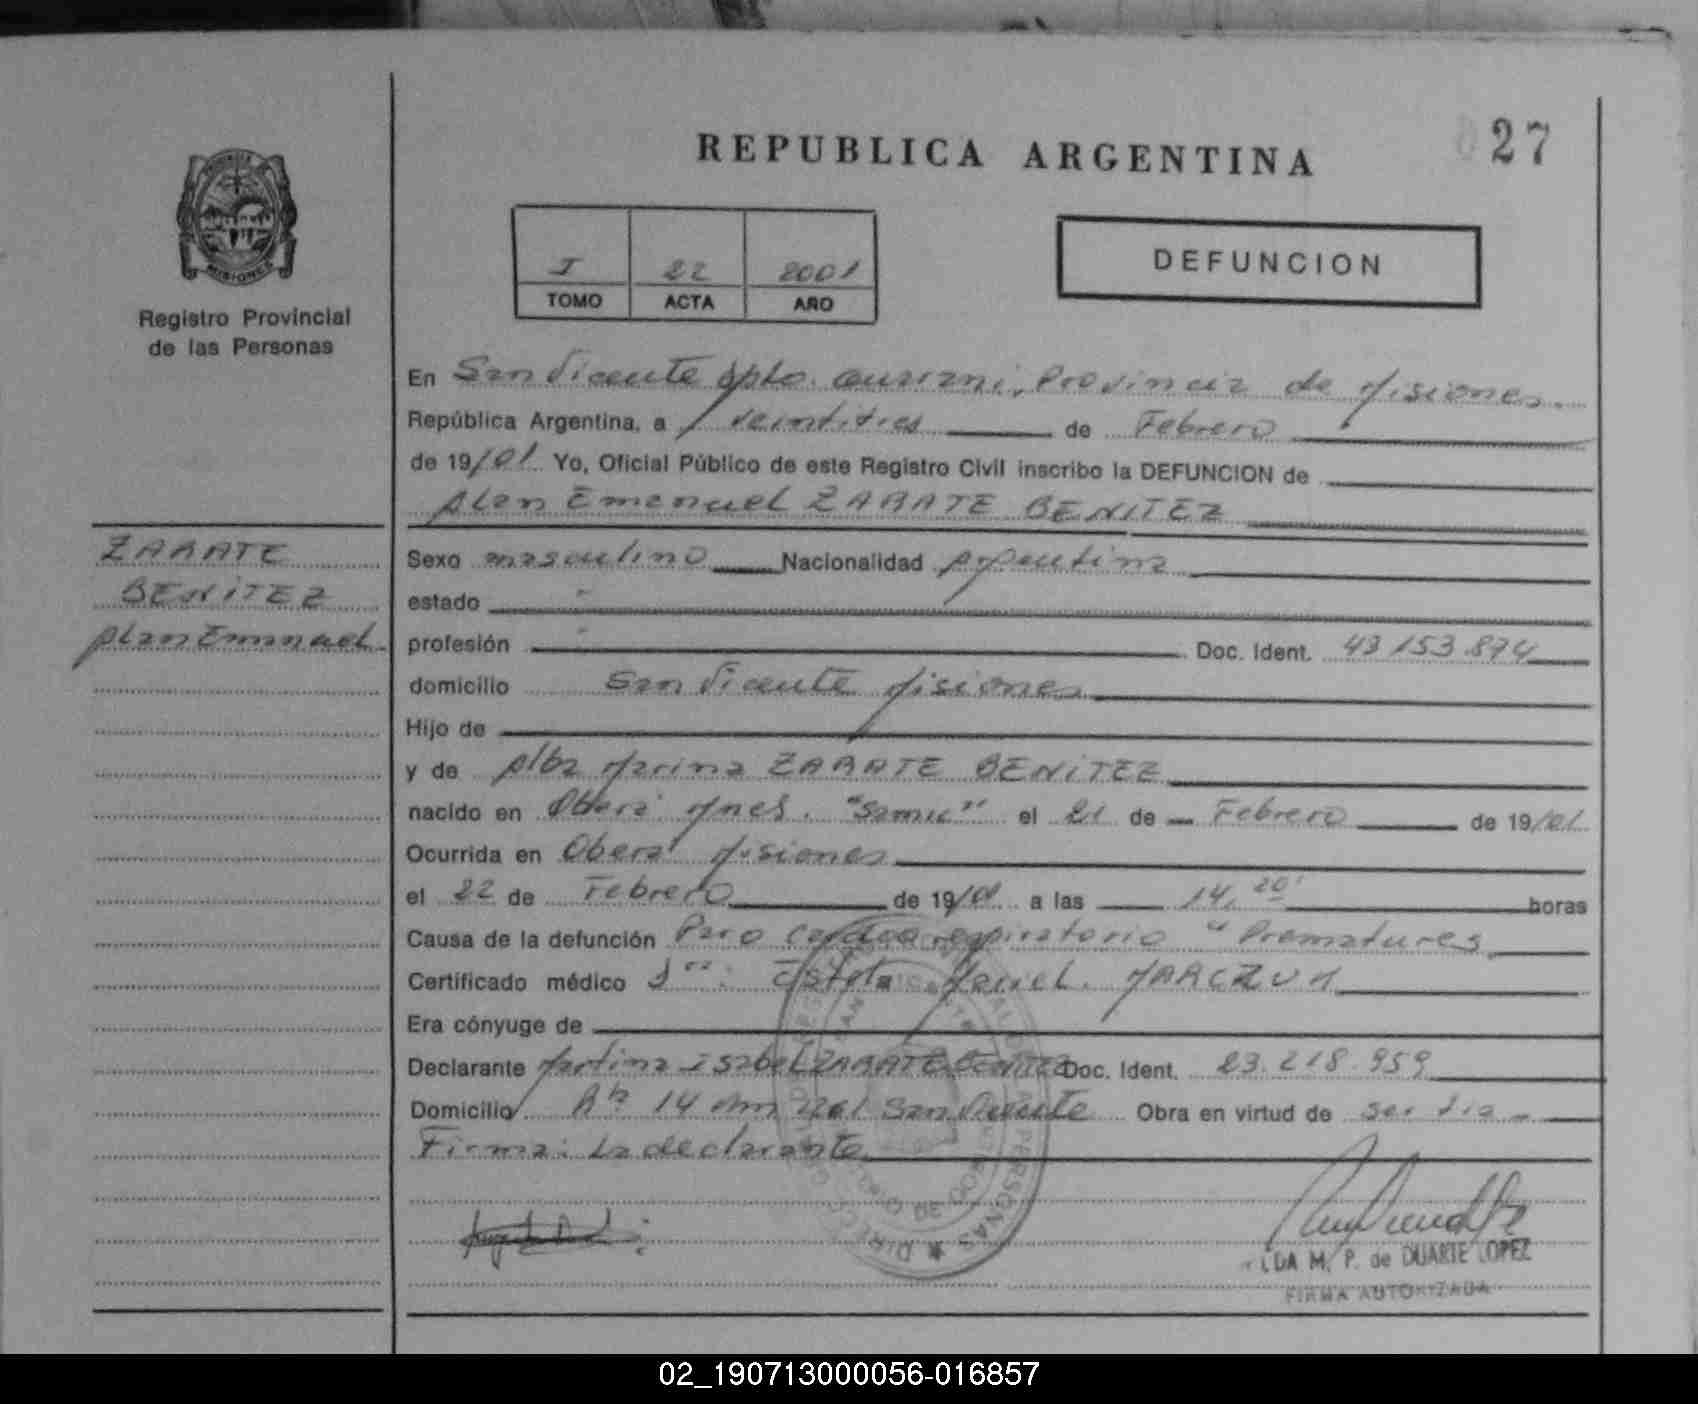 REPUBLICA ARGENTINA
27
MISIONES
Registro Provincial
de las Personas
I 22 2001
TOMO ACTA AÑO
DEFUNCION
En San Vicente Dpto. Guarani, Provincia de Misiones.
República Argentina, a veintitres de Febrero
de 19/01 Yo, Oficial Público de este Registro Civil inscribo la DEFUNCION de
Alan Emanuel ZARATE BENITEZ
ZARATE
BENITEZ
Alan Emanuel
Sexo masculino Nacionalidad Argentina
estado
profesión Doc. Ident. 43.153.894
domicilio San Vicente Misiones
Hijo de
y de Alba Marina ZARATE BENITEZ
nacido en Oberá Mnes. "Samic" el 21 de Febrero de 19/01
Ocurrida en Oberá Misiones
el 22 de Febrero de 19/01 a las 14,20' horas
Causa de la defunción Paro cardio respiratorio " Prematures
Certificado médico Mariel.
Era cónyuge de
Declarante Martina Isabel ZARATE BENITEZ Doc. Ident. 23.218.959
Domicilio 14 San Vicente Obra en virtud de ser tia
Firma: La declarante
DA M. P. de DUARTE LOPEZ
FIRMA AUTORIZADA
02_190713000056-016857